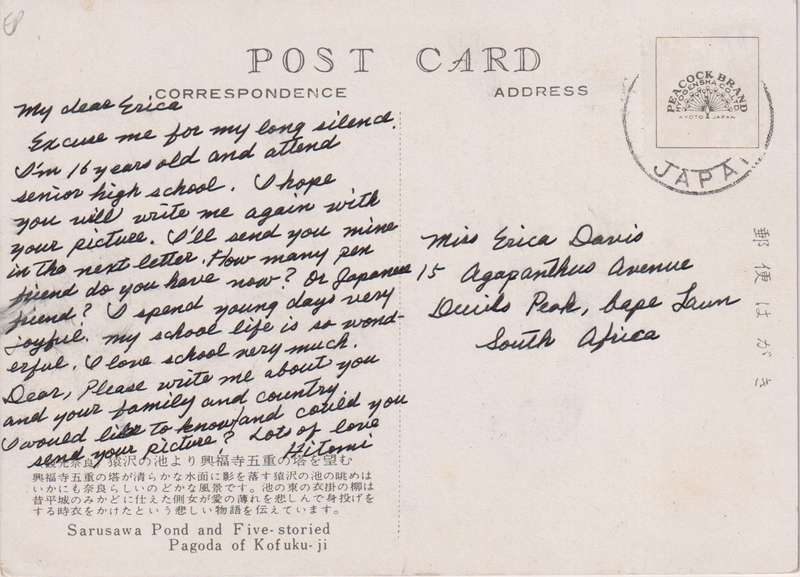 POST CARD
CORRESPONDENCE
ADDRESS
PEACOCK BRAND
HYOGENSHA CO. LTD
KYOTO JAPAN
JAPA
My dear Erica
Excuse me for my long silence.
I'm 16 years old and attend
senior high school. I hope
you will write me again with
your picture. I'll send you mine
in the next letter. How many pen
friend do you have now? Or Japanese
friend? I spend young days very
joyful. my school life is so wond-
erful. I love school very much.
Dear, Please write me about you
and your family and country
I would like to know/and could you
send your picture? Lots of love
Hitomi
Miss Erica Davis
15 Agapanthus Avenue
Devils Peak, Cape Town
South Africa
郵便はがき
奈良 猿沢の池より興福寺五重の塔を望む
興福寺五重の塔が清らかな水面に影を落す猿沢の池の眺めは
いかにも奈良らしいのどかな風景です。池の東の衣掛の柳は
昔平城のみかどに仕えた側女が愛の薄れを悲しんで身投げを
する時衣をかけたという悲しい物語を伝えています。
Sarusawa Pond and Five-storied
Pagoda of Kofuku-ji